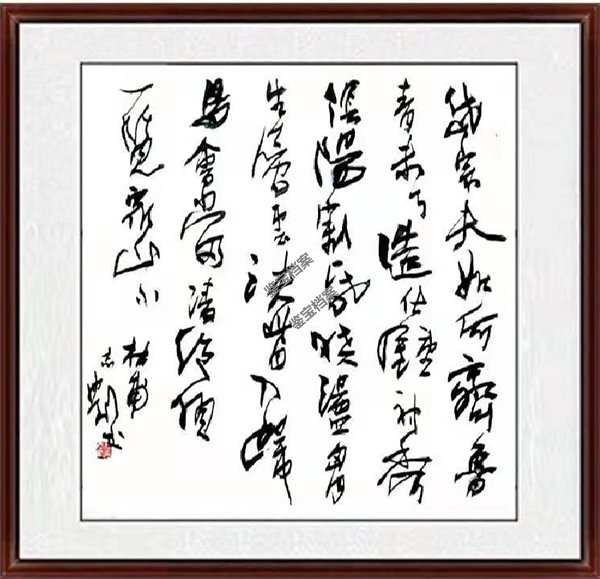 岱宗夫如何齊魯
青未了造化鍾神秀
陰陽割昏曉盪胸
生層雲決眥入歸
鳥會當凌絕頂
一覽眾山小
杜甫
鉴宝档案
鉴宝档案